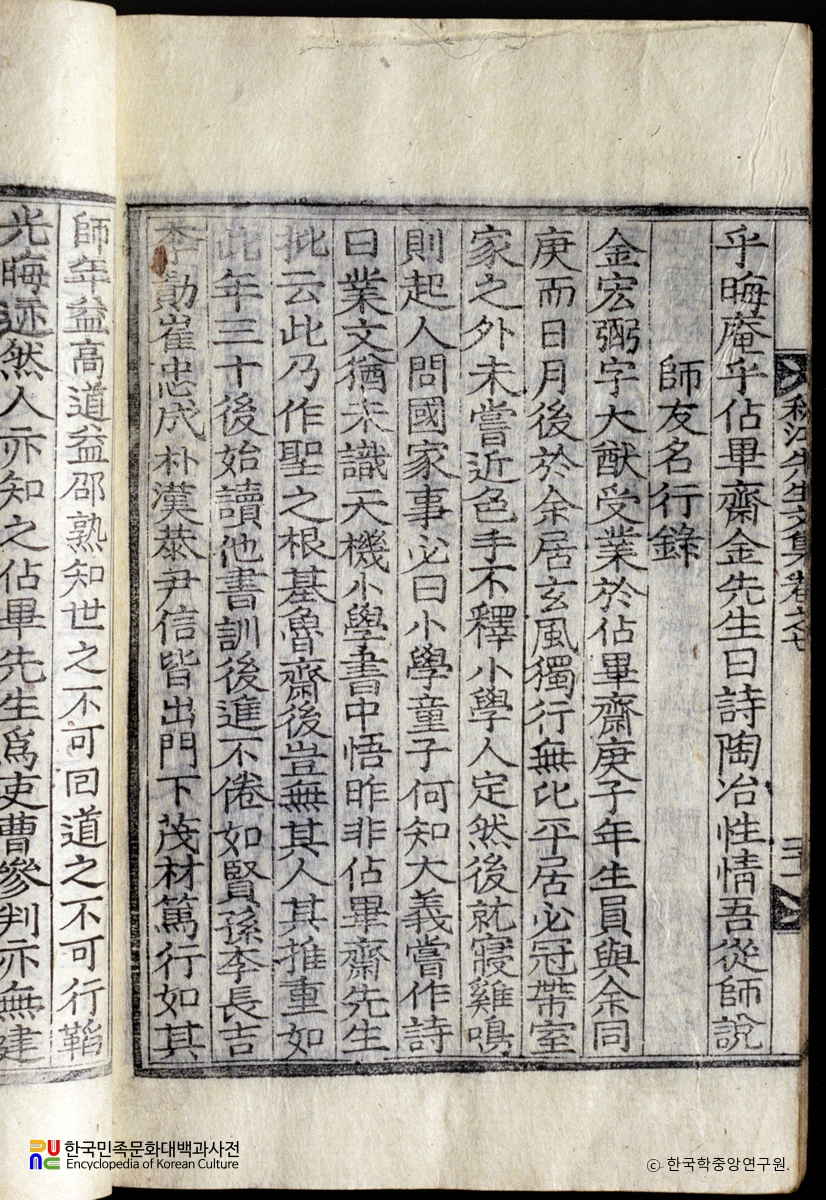 乎晦庵乎佔畢齋金先生曰詩陶冶性情吾從師說
師友名行錄
金宏弼字大猷受業於佔畢齋庚子年生員與余同
庚而日月後於余居玄風獨行無比平居必冠帶室
家之外未嘗近色手不釋小學人定然後就寢雞鳴
則起人問國家事必曰小學童子何知大義嘗作詩
曰業文猶未識天機小學書中悟昨非佔畢齋先生
批云此乃作聖之根基魯齋後豈無其人其推重如
此年三十後始讀他書訓後進不倦如賢孫李長吉
李勣崔忠成朴漢恭尹信皆出門下茂材篤行如其
師年益高道益邵熟知世之不可回道之不可行韜
光晦迹然人亦知之佔畢先生爲吏曹參判亦無建
秋江先生文集卷之七
三十一
한국민족문화대백과사전
Encyclopedia of Korean Culture
ⓒ 한국학중앙연구원.